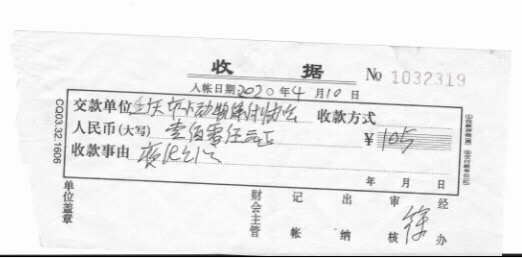 收 据 No 1032319
入帐日期2020年4月10日
交款单位 小动物保护协会 收款方式
人民币(大写) 壹佰零伍元正 ¥105
收款事由
年 月 日
单位盖章 财会主管 记帐 出纳 审核 徐 经办
CQ03.32.1606